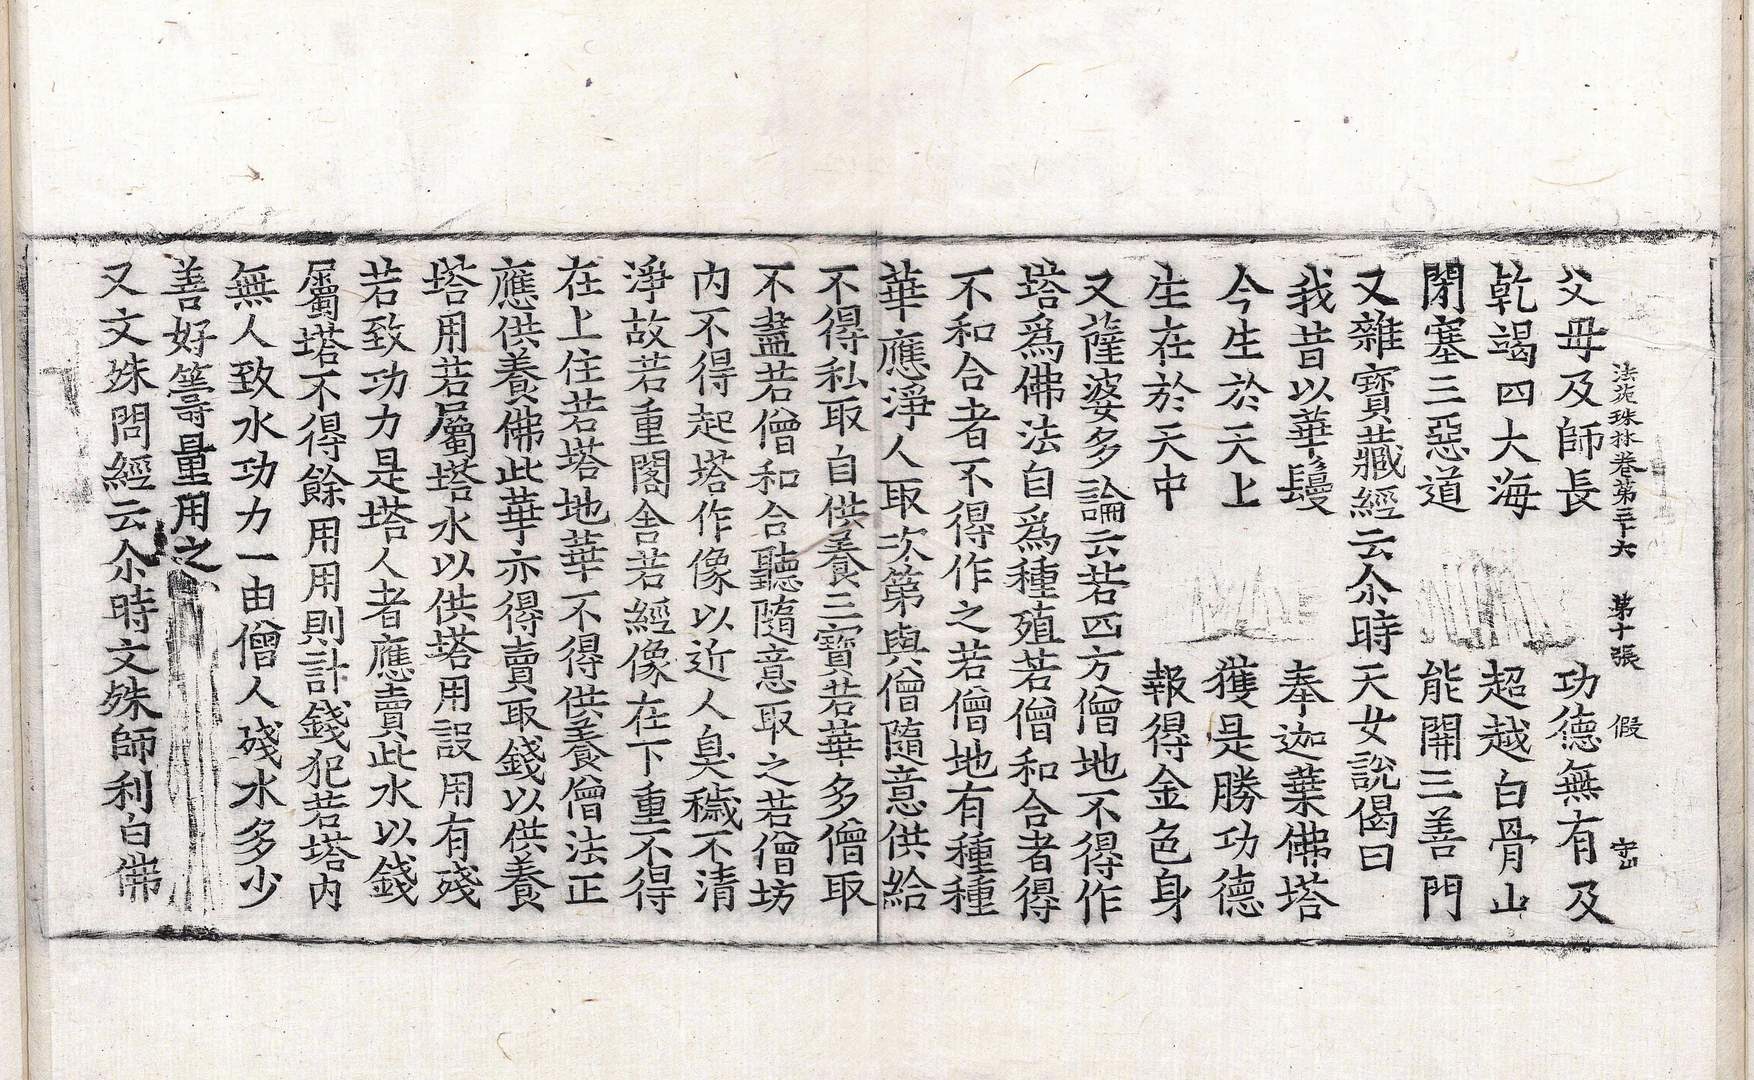 法苑珠林卷第三十六 第十張 假 守山
父母及師長 功德無有及
乾竭四大海 超越白骨山
閉塞三惡道 能開三善門
又雜寶藏經云尒時天女說偈曰
我昔以華鬘 奉迦葉佛塔
今生於天上 獲是勝功德
生在於天中 報得金色身
又薩婆多論云若四方僧地不得作
塔爲佛法自爲種殖若僧和合者得
不和合者不得作之若僧地有種種
華應淨人取次第與僧隨意供給
不得私取自供養三寶若華多僧取
不盡若僧和合聽隨意取之若僧坊
內不得起塔作像以近人臭穢不清
淨故若重閣舍若經像在下重不得
在上住若塔地華不得供養僧法正
應供養佛此華亦得賣取錢以供養
塔用若屬塔水以供塔用設用有殘
若致功力是塔人者應賣此水以錢
屬塔不得餘用用則計錢犯若塔內
無人致水功力一由僧人殘水多少
善好籌量用之
又文殊問經云尒時文殊師利白佛